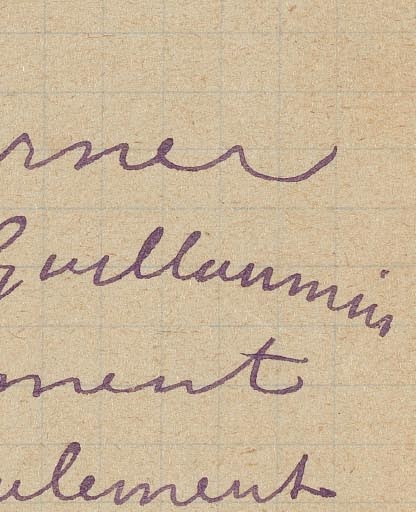 rner
Guillaumin
ment
ulement